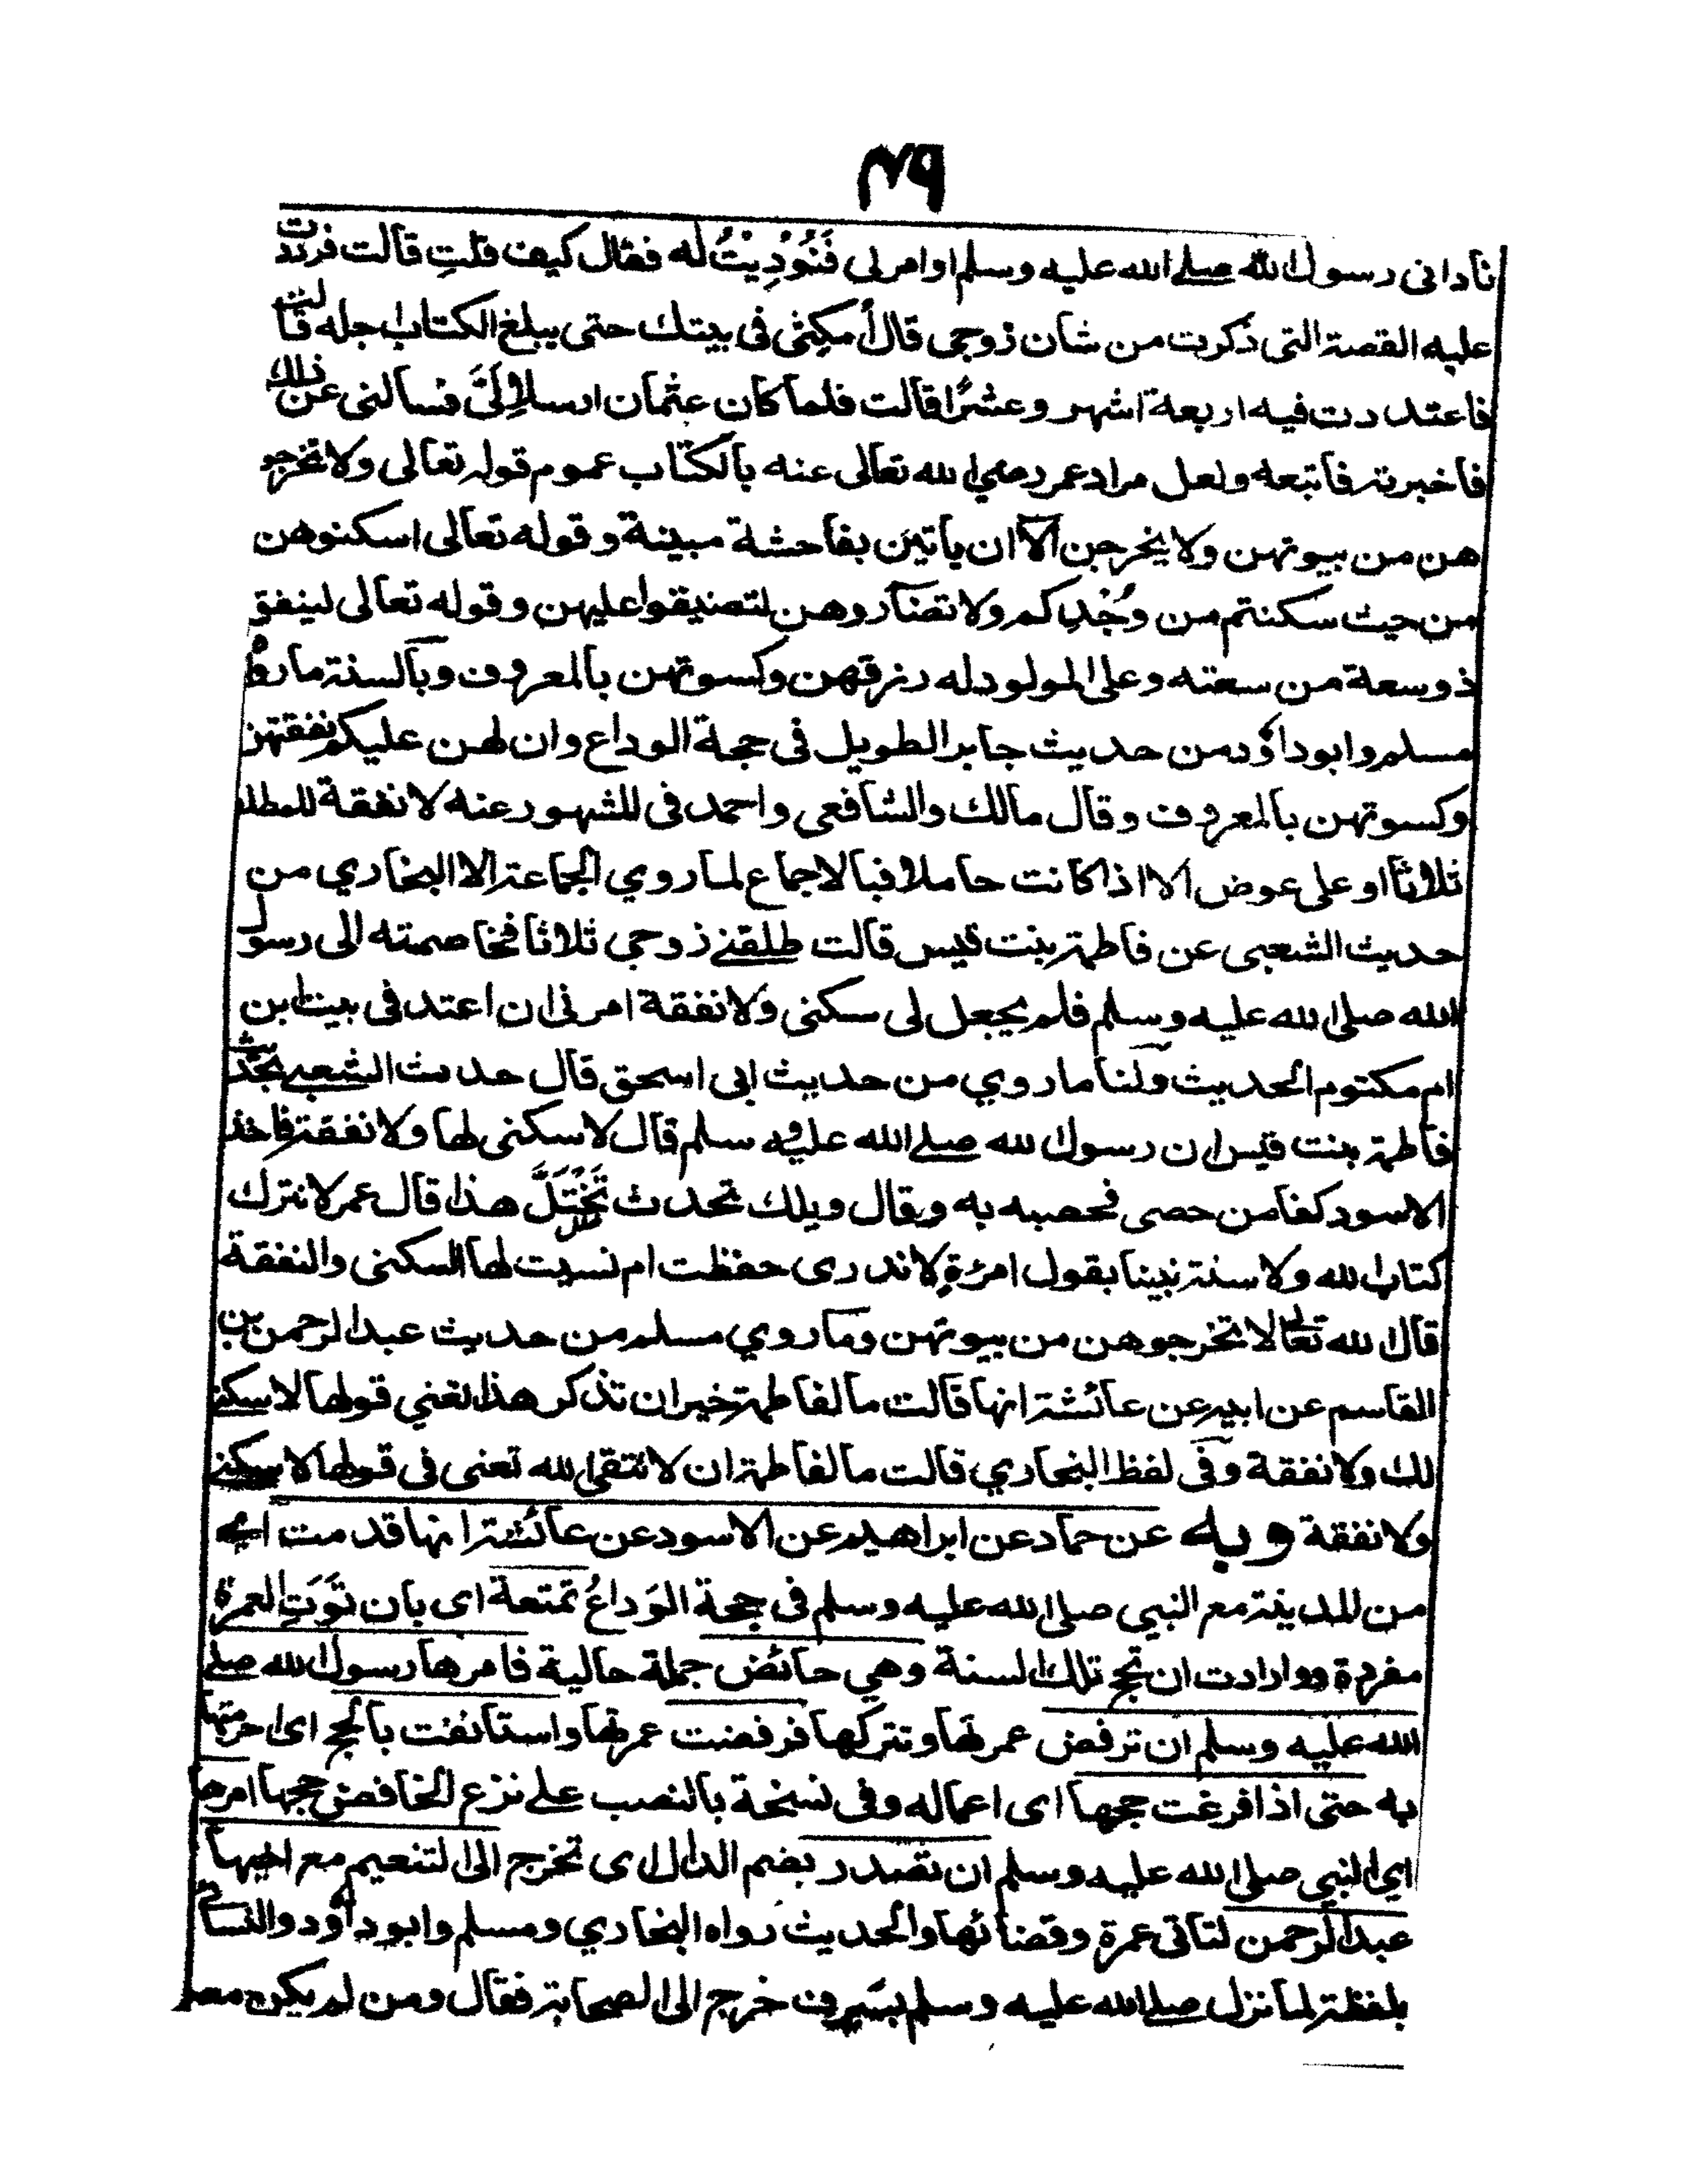 ٧٩
ناداني رسول الله صلى الله عليه وسلم او امر لى فَنُوْدِيْتُ له فقال كيف قلتِ قالت فرددت
عليه القصة التى ذكرت من شان زوجى قال أمكثى فى بيتك حتى يبلغ الكتاب اجله قالت
فاعتددت فيه اربعة اشهر وعشرًا قالت فلما كان عثمان ارسل إلَىَّ فسالنى عن ذلك
فاخبرته فاتبعه ولعل مراد عمر رضي الله تعالى عنه بالكتاب عموم قوله تعالى ولا تخرجو
هن من بيوتهن ولا يخرجن الا ان ياتين بفاحشة مبينة وقوله تعالى اسكنوهن
من حيث سكنتم من وُجْدِكم ولا تضآروهن لتضيقوا عليهن وقوله تعالى لينفق
ذو سعة من سعته وعلى المولود له رزقهن وكسوتهن بالمعروف وبالسنة ما رواه
مسلم وابو داؤد من حديث جابر الطويل فى حجة الوداع وان لهن عليكم نفقتهن
وكسوتهن بالمعروف وقال مالك والشافعى واحمد فى المشهور عنه لا نفقة للمطلقة
ثلاثا او على عوض الا اذا كانت حاملا فبالاجماع لما روي الجماعة الا البخاري من
حديث الشعبى عن فاطمة بنت قيس قالت طلقنے زوجي ثلاثا فخاصمته الى رسول
الله صلى الله عليه وسلم فلم يجعل لى سكنى ولا نفقة امرنى ان اعتد فى بيت ابن
ام مكتوم الحديث ولنا ما روي من حديث ابى اسحق قال حديث الشعبے بحديث
فاطمة بنت قيس ان رسول الله صلے الله عليه وسلم قال لا سكنى لها ولا نفقة فاخذ
الاسود كفا من حصى فحصبه به وقال ويلك تحدث هذا قال عمر لا نترك
كتاب الله ولا سنة نبينا بقول امرٔة لا ندرى حفظت ام نسيت لها السكنى والنفقة
قال الله تعالى لا تخرجوهن من بيوتهن وما روي مسلم من حديث عبد الرحمن بن
القاسم عن ابيه عن عائشة انها قالت ما لفاطمة خير ان تذكر هذا تعني قولها لا سكنے
لك ولا نفقة وفى لفظ البخاري قالت ما لفاطمة ان لا تتقى الله تعنى فى قولها لا سكنے
ولا نفقة وبه عن حماد عن ابراهيم عن الاسود عن عائشة انها قدمت اى
من المدينة مع النبي صلى الله عليه وسلم فى حجة الوَداعُ تمتعة اى بان نَوَتِ العمرة
مفردة وارادت ان تحج تلك السنة وهي حائض جملة حالية فامرها رسول الله صلے
الله عليه وسلم ان ترفض عمرتها وتتركها فرفضت عمرتها واستانفت بالحج اى احرمتها
به حتى اذا فرغت حجها اى اعماله وفى نسخة بالنصب علے نزع الخافض حجها امرها
اي النبي صلى الله عليه وسلم ان تصدر بضم الدال اى تخرج الى التنعيم مع اخيها
عبد الرحمن لتاتى عمرة وقضائها والحديث رواه البخاري ومسلم وابو داؤد والنسائي
بلفظة لما نزل صلے الله عليه وسلم بسَرِف خرج الى الصحابة فقال ومن لم يكن معه